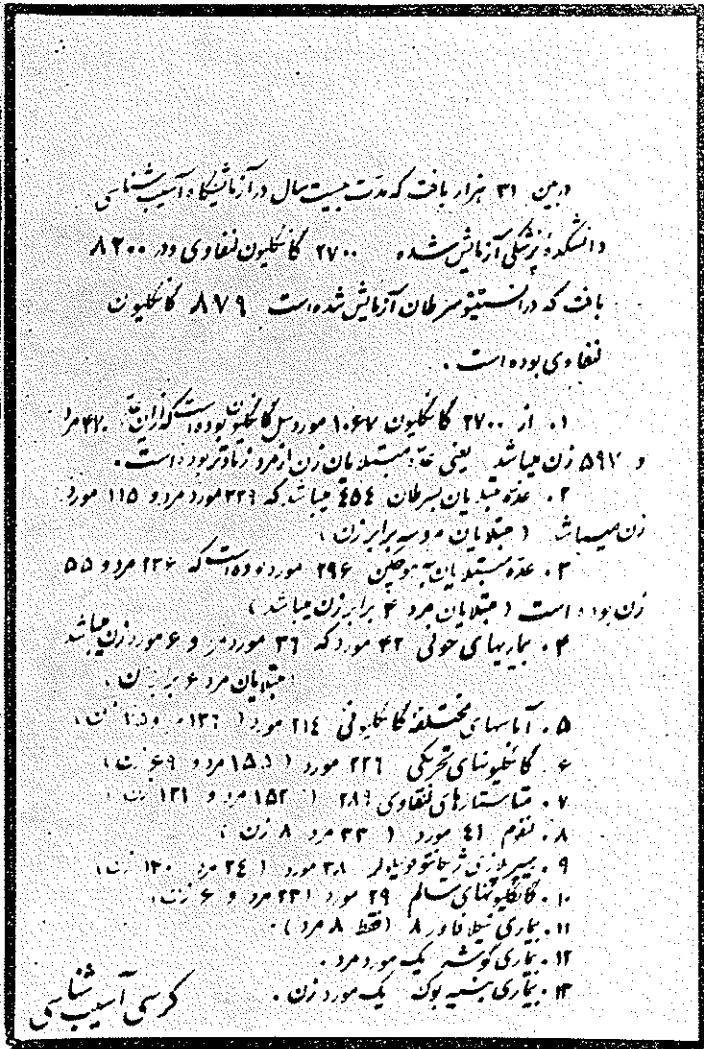 دربین ۳۱ هزار بافت که مدت بیست سال در آزمایشگاه آسیب شناسی
دانشکده پزشکی آزمایش شده ۲۷۰۰ گانگلیون لنفاوی ودر ۸۲۰۰
بافت که در انستیتو سرطان آزمایش شده است ۸۷۹ گانگلیون
لنفاوی بوده است .
۱. از ۲۷۰۰ گانگلیون ۱۰۶۷ مورد سل گانگلیون بوده است که از این عده ۴۷۰ مرد
و ۵۹۷ زن میباشد یعنی عده مبتلایان زن از مرد زیادتر بوده است .
۲. عده مبتلایان بسرطان ۴۵۴ میباشد که ۳۳۹ مورد مرد و ۱۱۵ مورد
زن میباشد ( مبتلایان مرد سه برابر زن )
۳. عده مبتلایان به هوچکین ۲۹۶ مورد بوده است که ۲۳۶ مرد و ۵۵
زن بوده است ( مبتلایان مرد ۴ برابر زن میباشد )
۴. بیماریهای خونی ۴۲ مورد که ۳۶ مورد مرد و ۶ مورد زن میباشد
مبتلایان مرد ۶ برابر زن .
۵. آماسهای مختلفه گانگلیونی ۲۱۴ مورد ( ۱۳۶ مرد و زن )
۶. گانگلیونهای تحریکی ۲۲۶ مورد ( ۱۵۵ مرد و ۶۹ زن )
۷. متاستازهای لنفاوی ۲۸۹ ( ۱۵۲ مرد و ۱۳۱ زن )
۸. لنفوم ۴۱ مورد ( ۳۳ مرد ۸ زن )
۹. ۳۸ مورد ( ۲۴ مرد ۱۴۰ زن )
۱۰. گانگلیونهای سالم ۲۹ مورد ( ۲۳ مرد و ۶ زن )
۱۱. بیماری ۸ ( فقط ۸ مرد ) .
۱۲. بیماری گوشه یک مورد مرد .
۱۳. بیماری یک مورد زن .
کرسی آسیب شناسی